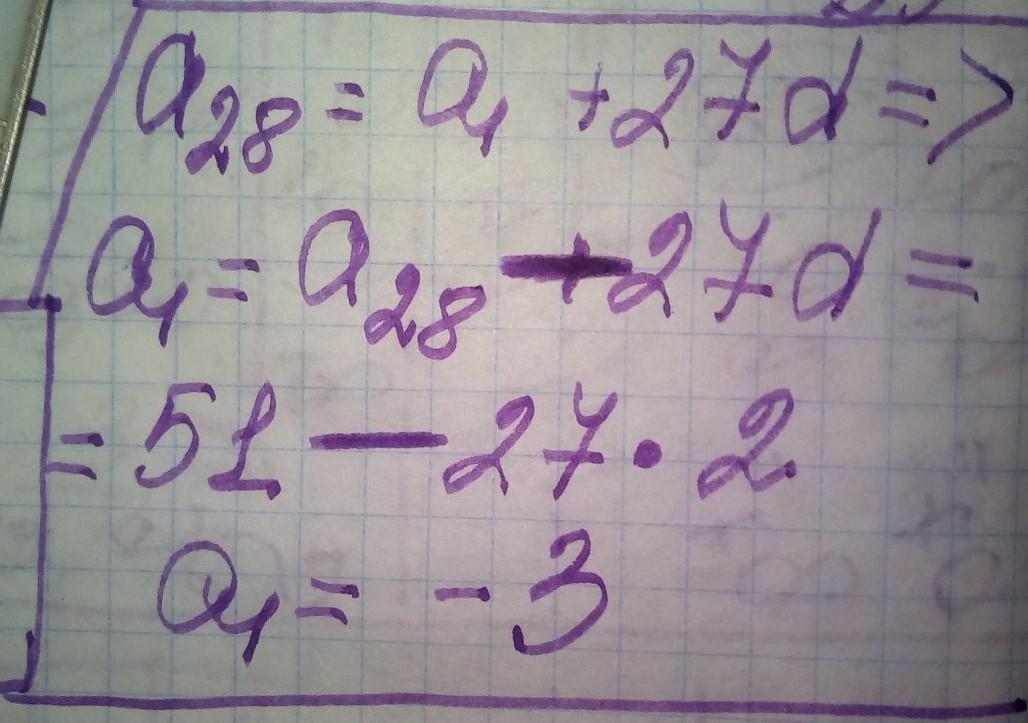 a₂₈ = a₁ + 27d =>
a₁ = a₂₈ − 27d =
= 51 − 27 · 2
a₁ = − 3